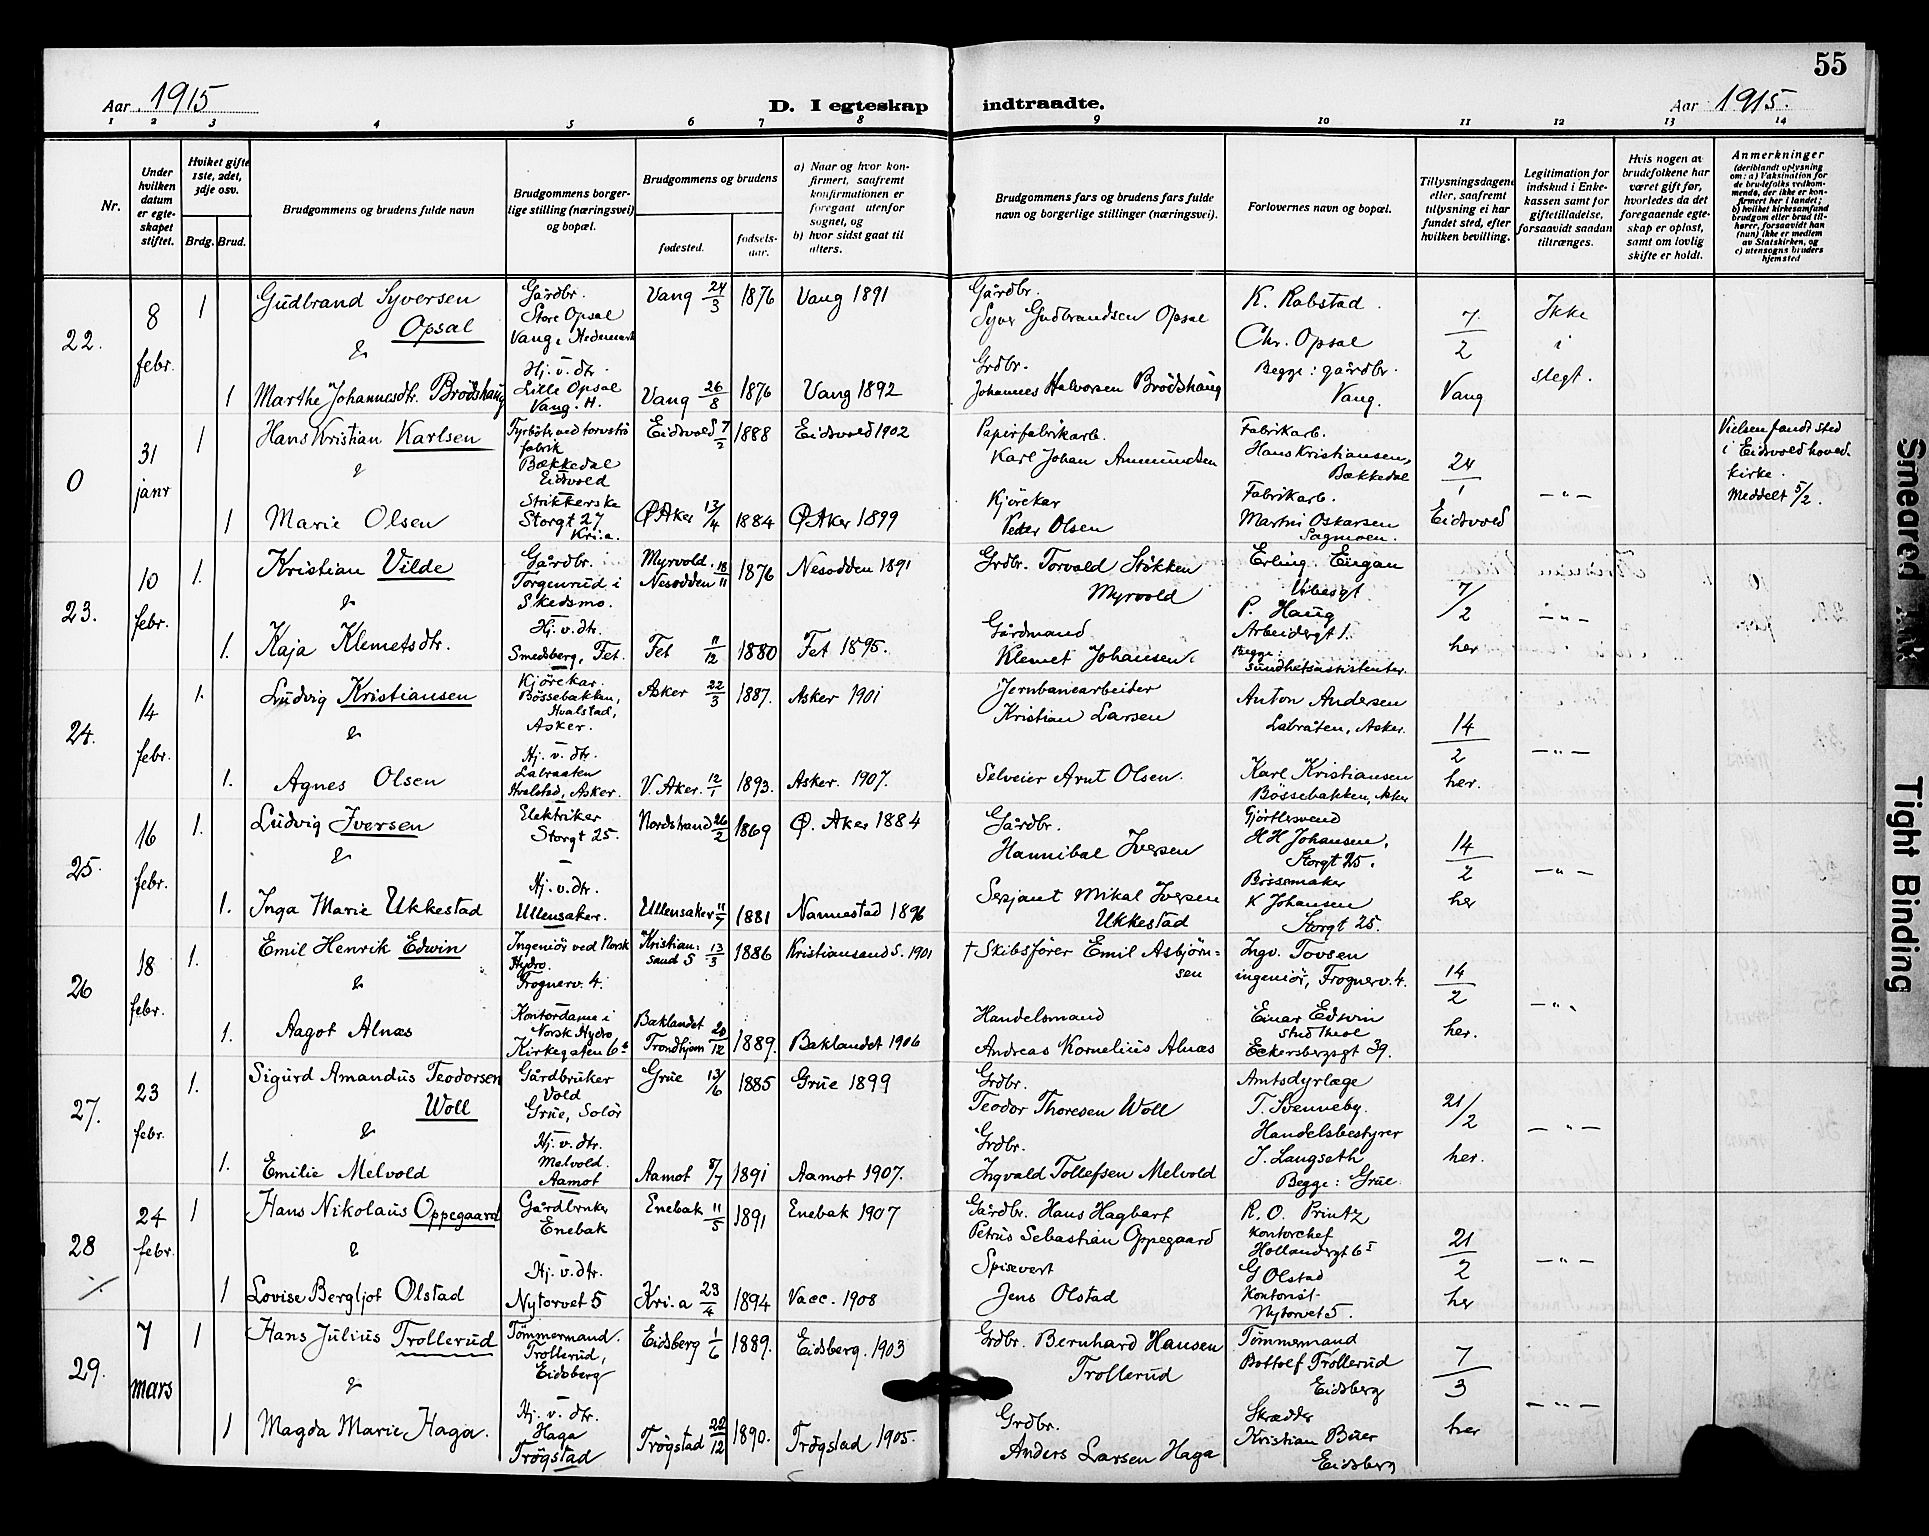 55
Aar 1915
D. I egteskap indtraadte.
Aar 1915.
1 2 3 4 5 6 7 8 9 10 11 12 13 14
Nr.
Under hvilken datum er egteskapet stiftet.
Hviket gifte 1ste, 2det, 3dje osv.
Brdg. Brud.
Brudgommens og brudens fulde navn
Brudgommens borgerlige stilling (næringsvei) og bopæl.
Brudgommens og brudens
fødested.
fødselsaar.
a) Naar og hvor konfirmert, saafremt konfirmationen er foregaat utenfor sognet, og
b) hvor sidst gaat til alters.
Brudgommens fars og brudens fars fulde navn og borgerlige stillinger (næringsvei).
Forlovernes navn og bopæl.
Tillysningsdagene eller, saafremt tillysning ei har fundet sted, efter hvilken bevilling.
Legitimation for indskud i Enkekassen samt for giftetilladelse, forsaavidt saadan tiltrænges.
Hvis nogen av brudefolkene har været gift før, hvorledes da det foregaaende egteskap er opløst, samt om lovlig skifte er holdt.
Anmerkninger
(deriblandt oplysning om: a) Vaksination for de brudefolks vedkommende, der ikke er konfirmert her i landet; b) hvilket kirkesamfund brudgom eller brud tilhører, forsaavidt han (hun) ikke er medlem av Statskirken, og c) utensogns bruders hjemsted
22. 8 febr. 1
Gudbrand Syversen Opsal
&
Gårdbr. Store Opsal Vang, Hedemark
Vang 24/3 1876 Vang 1891
Gårdbr. Syver Gudbrandsen Opsal
K. Rabstad.
Chr. Opsal
Begge: gårdbr. Vang.
7/2 Vang
Ikke i slegt.
1 Marthe Johannesdtr. Brodshaug
Hj. v. dtr. Lille Opsal Vang. H.
Vang 26/8 1876 Vang 1892
Grdbr. Johannes Halvorsen Brodshaug
0 31 janr 1
Hans Kristian Karlsen
&
Fyrbøter ved torvstrø fabrik Bækkedal Eidsvold
Eidsvold 7/2 1888 Eidsvold 1902
Papirfabrikarb. Karl Johan Ammundsen
Fabrikarb. Hans Kristiansen, Bækkedal
Fabrikarb. Martin Oskarsen Sagmoen.
24/1 Eidsvold
— " —
Vielsen fandt sted i Eidsvold hovedkirke. Meddelt 5/2.
1 Marie Olsen
Strikkerske Storgt 27, Kri.a.
Ø. Aker 13/4 1884 Ø. Aker 1899
Kjørekar Peder Olsen
23. 10 febr. 1.
Kristian Vilde
&
Gårdbr. Torgenrud i Skedsmo.
Myrvold. Nesodden 18/11 1876 Nesodden 1891
Grdbr. Torvald Stokken Myrvold
Erling Engan Vibesgt
P. Haug Arbeidergt 1.
Begge: sundhetsassistenter
7/2 her
— " —
1. Kaja Klemetsdtr.
Hj. v. dtr. Smedsberg, Fet.
Fet 11/12 1880 Fet 1895.
Gårdmand Klemet Johansen.
24. 14 febr. 1.
Ludvig Kristiansen
&
Kjørekar. Bøssebakken, Hvalstad, Asker.
Asker 22/3 1887. Asker 1901
Jernbanearbeider Kristian Larsen
Anton Andersen Labråten, Asker.
Karl Kristiansen Bøssebakken, Asker
14/2 her.
— " —
1. Agnes Olsen
Hj. v. dtr. Labraaten Hvalstad, Asker.
V. Aker. 12/1 1893. Asker. 1907.
Selveier Arnt Olsen.
25. 16 febr. 1.
Ludvig Iversen
&
Elektriker Storgt 25.
Nordstrand 26/2 1869 Ø. Aker 1884
Gårdbr. Hannibal Iversen
Gjørtlersvend H H Johansen, Storgt 25.
Bøssemaker K Johansen Storgt 25.
14/2 her
— " —
1. Inga Marie Ukkestad
Hj. v. dtr. Ullensaker.
Ullensaker 11/7 1881 Nannestad 1896
Sersjant Mikal Iversen Ukkestad
26 18 febr. 1.
Emil Henrik Edwin
&
Ingeniör ved Norsk Hydro. Frognerv. 4.
Kristiansand S 13/3 1886 Kristiansand S. 1901
† Skibsfører Emil Asbjørnsen
Ingv. Tovsen ingeniør, Frognerv. 4.
Einar Edwin stud theol Eckersbergsgt 39.
14/2 her.
— " —
1. Aagot Alnæs
Kontordame i Norsk Hydro Kirkegaten 6b
Baklandet Trondhjem 20/12 1889. Baklandet 1906
Handelsmand Andreas Kornelius Alnæs
27. 23 febr. 1.
Sigurd Amandus Teodorsen Woll
&
Gårdbruker Vold Grue, Solør
Grue 13/6 1885 Grue 1899
Grdbr. Teodor Thoresen Woll
Amtsdyrlæge T. Svenneby.
Handelsbestyrer J. Langseth
Begge: Grue
21/2 her.
— " —
1. Emilie Melvold
Hj. v. dtr. Melvold. Aamot
Aamot 8/7 1891 Aamot 1907.
Grdbr. Ingvald Tollefsen Melvold
28 24 febr. 1
Hans Nikolaus Oppegaard
&
Gårdbruker Enebak
Enebak 11/5 1891 Enebak 1907
Gårdbr. Hans Hagbart Petrus Sebastian Oppegaard
R. O. Printz kontorchef Hollandergt 6 I
G Olstad Kontorist Nytorvet 5.
21/2 her
— " —
1 Lovise Bergljot Olstad
Hj. v. dtr. Nytorvet 5
Kri.a 23/4 1894 Vacc. 1908
Spisevert Jens Olstad
29. 7 mars 1
Hans Julius Trollerud
&
Tømmermand. Trollerud, Eidsberg
Eidsberg 1/6 1889. Eidsberg. 1903
Grdbr. Bernhard Hansen Trollerud
Tømmermand Bottolf Trollerud Eidsberg
Skrædder Kristian Buer Eidsberg
7/3 her
— " —
1 Magda Marie Haga.
Hj. v. dtr. Haga Trøgstad
Trøgstad 22/12 1890. Trøgstad 1905.
Grdbr. Anders Larsen Haga
Smeared Ink
Tight Binding